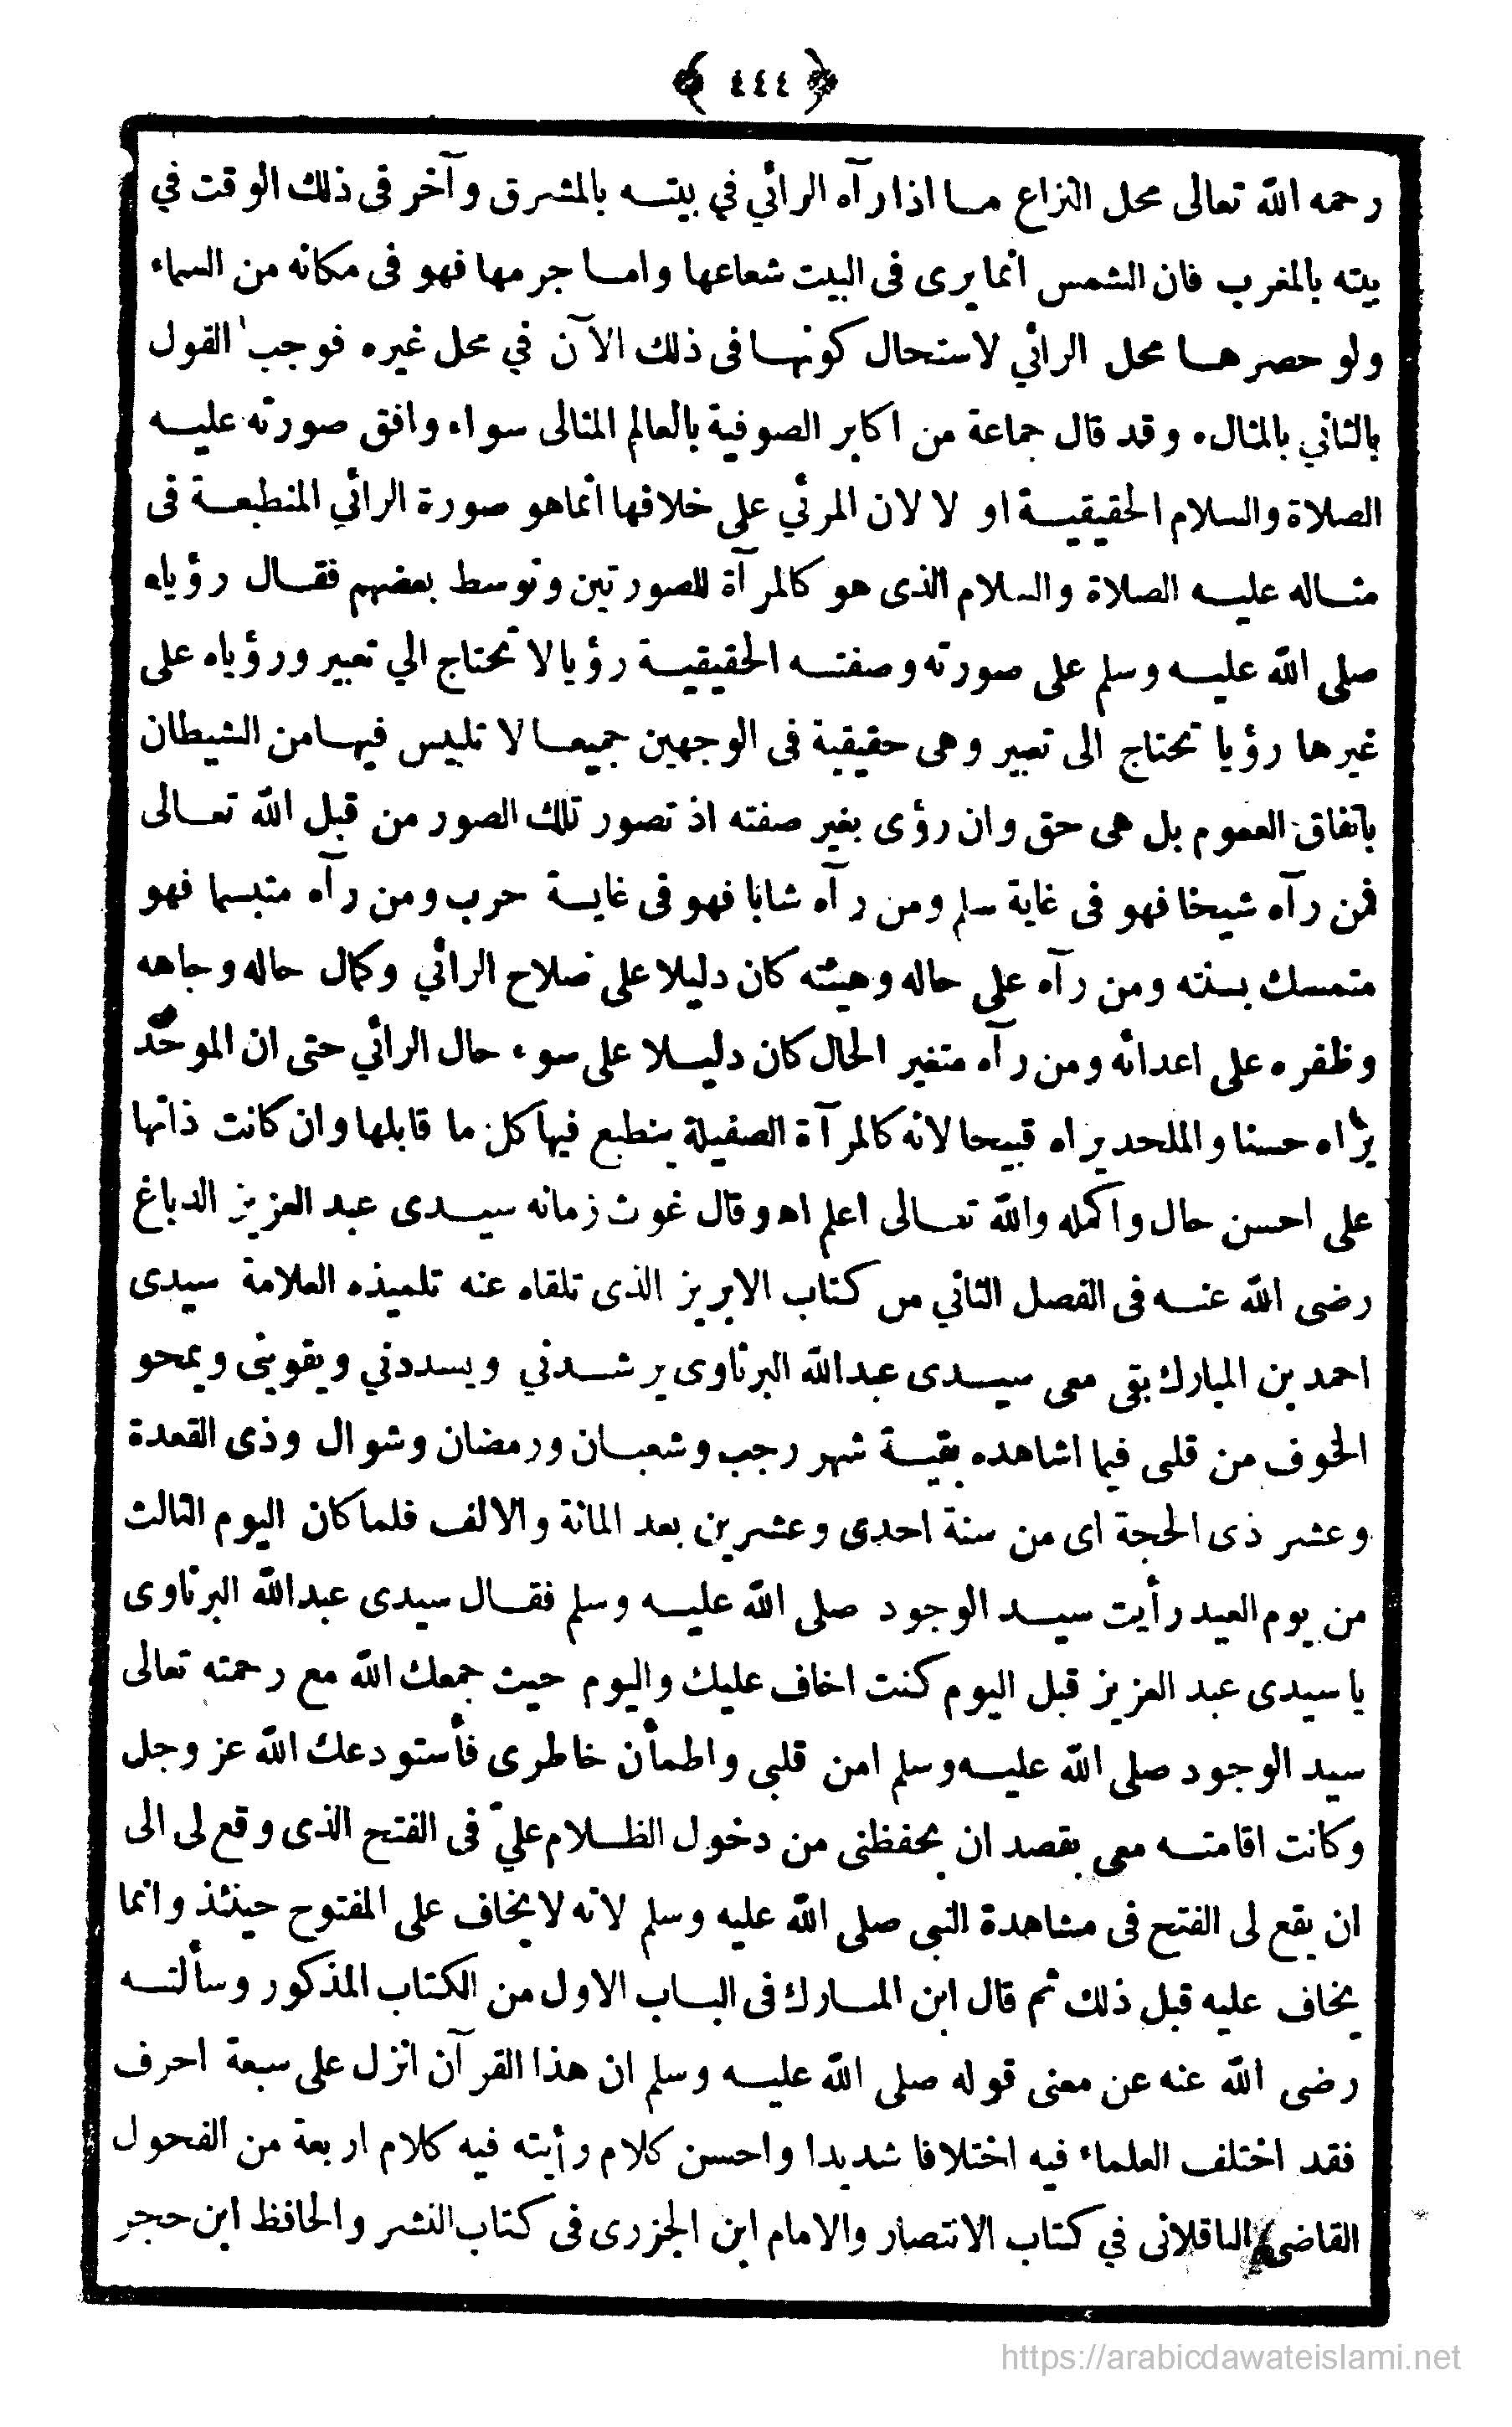 ﴿ ٤٤٤ ﴾
رحمه الله تعالى محل النزاع ما اذا رآه الرائي في بيته بالمشرق وآخر فى ذلك الوقت في
بيته بالمغرب فان الشمس انما يرى فى البيت شعاعها واما جرمها فهو فى مكانه من السماء
ولو حصرها محل الرائي لاستحال كونها فى ذلك الآن في محل غيره فوجب القول
بالثاني بالمثال، وقد قال جماعة من اكابر الصوفية بالعالم المثالى سواء وافق صورته عليه
الصلاة والسلام الحقيقية او لا لان المرئي على خلافها انما هو صورة الرائي المنطبعة فى
مثاله عليه الصلاة والسلام الذى هو كالمرآة للصورتين وتوسط بعضهم فقال رؤياه
صلى الله عليه وسلم على صورته وصفته الحقيقية رؤيا لا تحتاج الي تعبير ورؤياه على
غيرها رؤيا تحتاج الى تعبير وهى حقيقية فى الوجهين جميعا لا تلبيس فيها من الشيطان
باتفاق العموم بل هى حق وان رؤى بغير صفته اذ تصور تلك الصور من قبل الله تعالى
فمن رآه شيخا فهو فى غاية سلم ومن رآه شابا فهو فى غاية حرب ومن رآه متبسما فهو
متمسك بسنته ومن رآه على حاله وهيئته كان دليلا على صلاح الرائي وكمال حاله وجاهه
وظفره على اعدائه ومن رآه متغير الحال كان دليلا على سوء حال الرائي حتى ان الموحّد
يراه حسنا والملحد يراه قبيحا لانه كالمرآة الصقيلة ينطبع فيها كل ما قابلها وان كانت ذاتها
على احسن حال واكمله والله تعالى اعلم اه وقال غوث زمانه سيدى عبد العزيز الدباغ
رضى الله عنه فى الفصل الثاني من كتاب الابريز الذى تلقاه عنه تلميذه العلامة سيدى
احمد بن المبارك بقى معى سيدى عبدالله البرناوى يرشدني ويسددني ويقويني ويمحو
الخوف من قلبى فيما اشاهده بقية شهر رجب وشعبان ورمضان وشوال وذى القعدة
وعشر ذى الحجة اى من سنة احدى وعشرين بعد المائة والالف فلما كان اليوم الثالث
من يوم العيد رأيت سيد الوجود صلى الله عليه وسلم فقال سيدى عبدالله البرناوى
يا سيدى عبد العزيز قبل اليوم كنت اخاف عليك واليوم حيث جمعك الله مع رحمته تعالى
سيد الوجود صلى الله عليه وسلم امن قلبى واطمأن خاطرى فأستودعك الله عز وجل
وكانت اقامته معى بقصد ان يحفظنى من دخول الظلام عليّ فى الفتح الذى وقع لى الى
ان يقع لى الفتح فى مشاهدة النبى صلى الله عليه وسلم لانه لا يخاف على المفتوح حينئذ وانما
يخاف عليه قبل ذلك ثم قال ابن المبارك فى الباب الاول من الكتاب المذكور وسألته
رضى الله عنه عن معنى قوله صلى الله عليه وسلم ان هذا القرآن انزل على سبعة احرف
فقد اختلف العلماء فيه اختلافا شديدا واحسن كلام رأيته فيه كلام اربعة من الفحول
القاضى الباقلانى في كتاب الانتصار والامام ابن الجزرى فى كتاب النشر والحافظ ابن حجر
https://arabicdawateislami.net